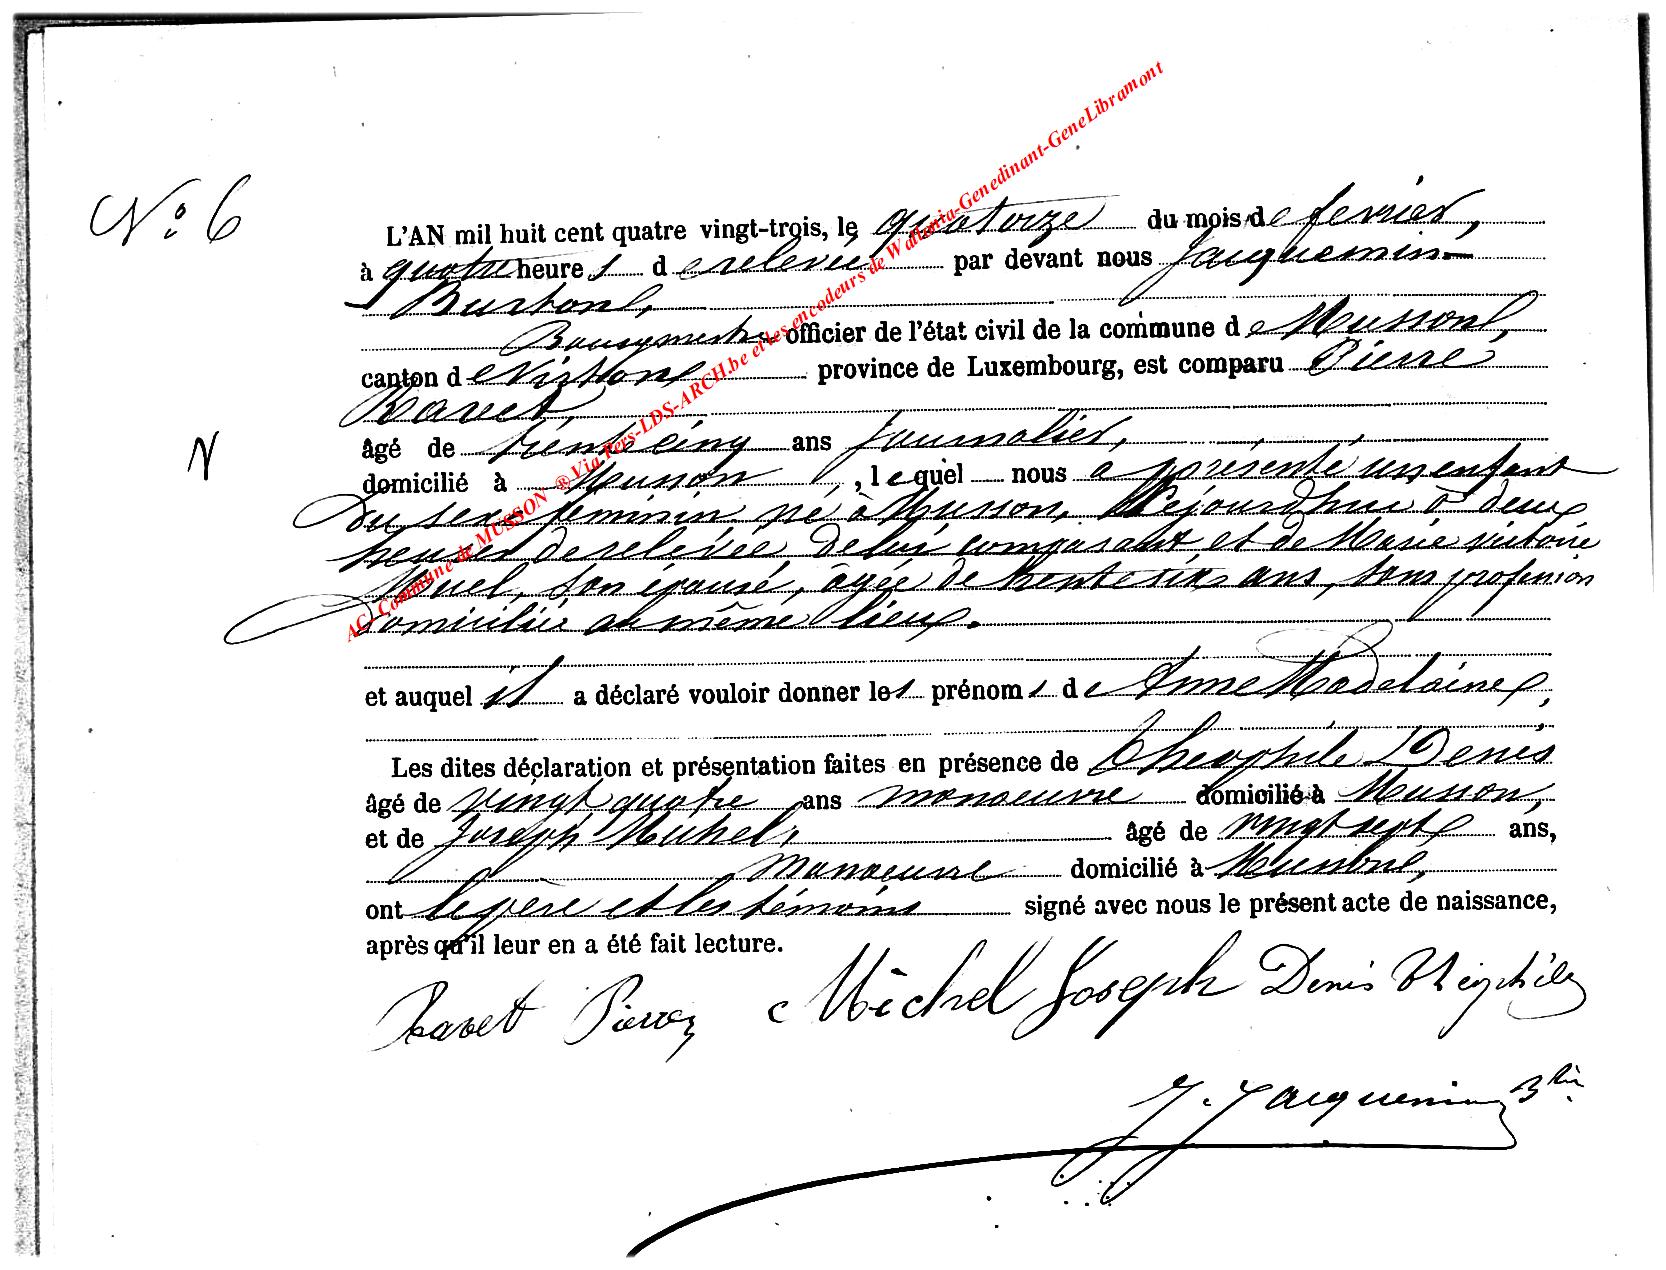 N° 6
L'AN mil huit cent quatre vingt-trois, le quatorze du mois de fevrier,
à quatre heures de relevée par devant nous Jacquemin-
Burton,
Bourgmestre officier de l'état civil de la commune de Musson,
canton de Virton province de Luxembourg, est comparu Pierre
Ravet,
âgé de trente cinq ans journalier,
N
domicilié à Musson, lequel nous a présenté un enfant
du sexe féminin né à Musson, cejourdhui à deux
heures de relevée de lui comparant et de Marie victoire
son épouse, âgée de trente six ans, sans profession
domiciliée au même lieux.
et auquel il a déclaré vouloir donner les prénoms de Anne Madelaine,
Les dites déclaration et présentation faites en présence de Theophile Denis
âgé de vingt quatre ans manoeuvre domicilié à Musson,
et de Joseph Michel, âgé de vingt sept ans,
manoeuvre domicilié à Musson,
ont le père et les témoins signé avec nous le présent acte de naissance,
après qu'il leur en a été fait lecture.
Ravet Pierre Michel Joseph Denis Théophile
J. Jacquemin Btn
AC. Commune de MUSSON ® Via Pers-LDS-ARCH.be et les encodeurs de Wallonia-Genedinant-GeneLibramont